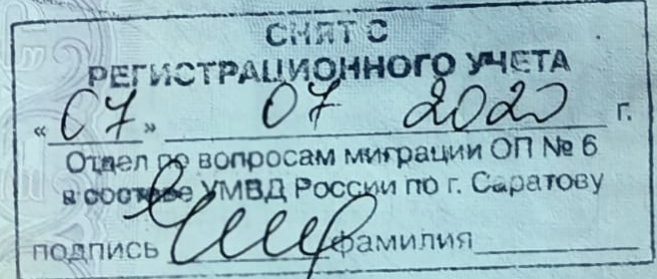 СНЯТ С
РЕГИСТРАЦИОННОГО УЧЕТА
«07» 07 2020 г.
Отдел по вопросам миграции ОП № 6
в составе УМВД России по г. Саратову
подпись фамилия